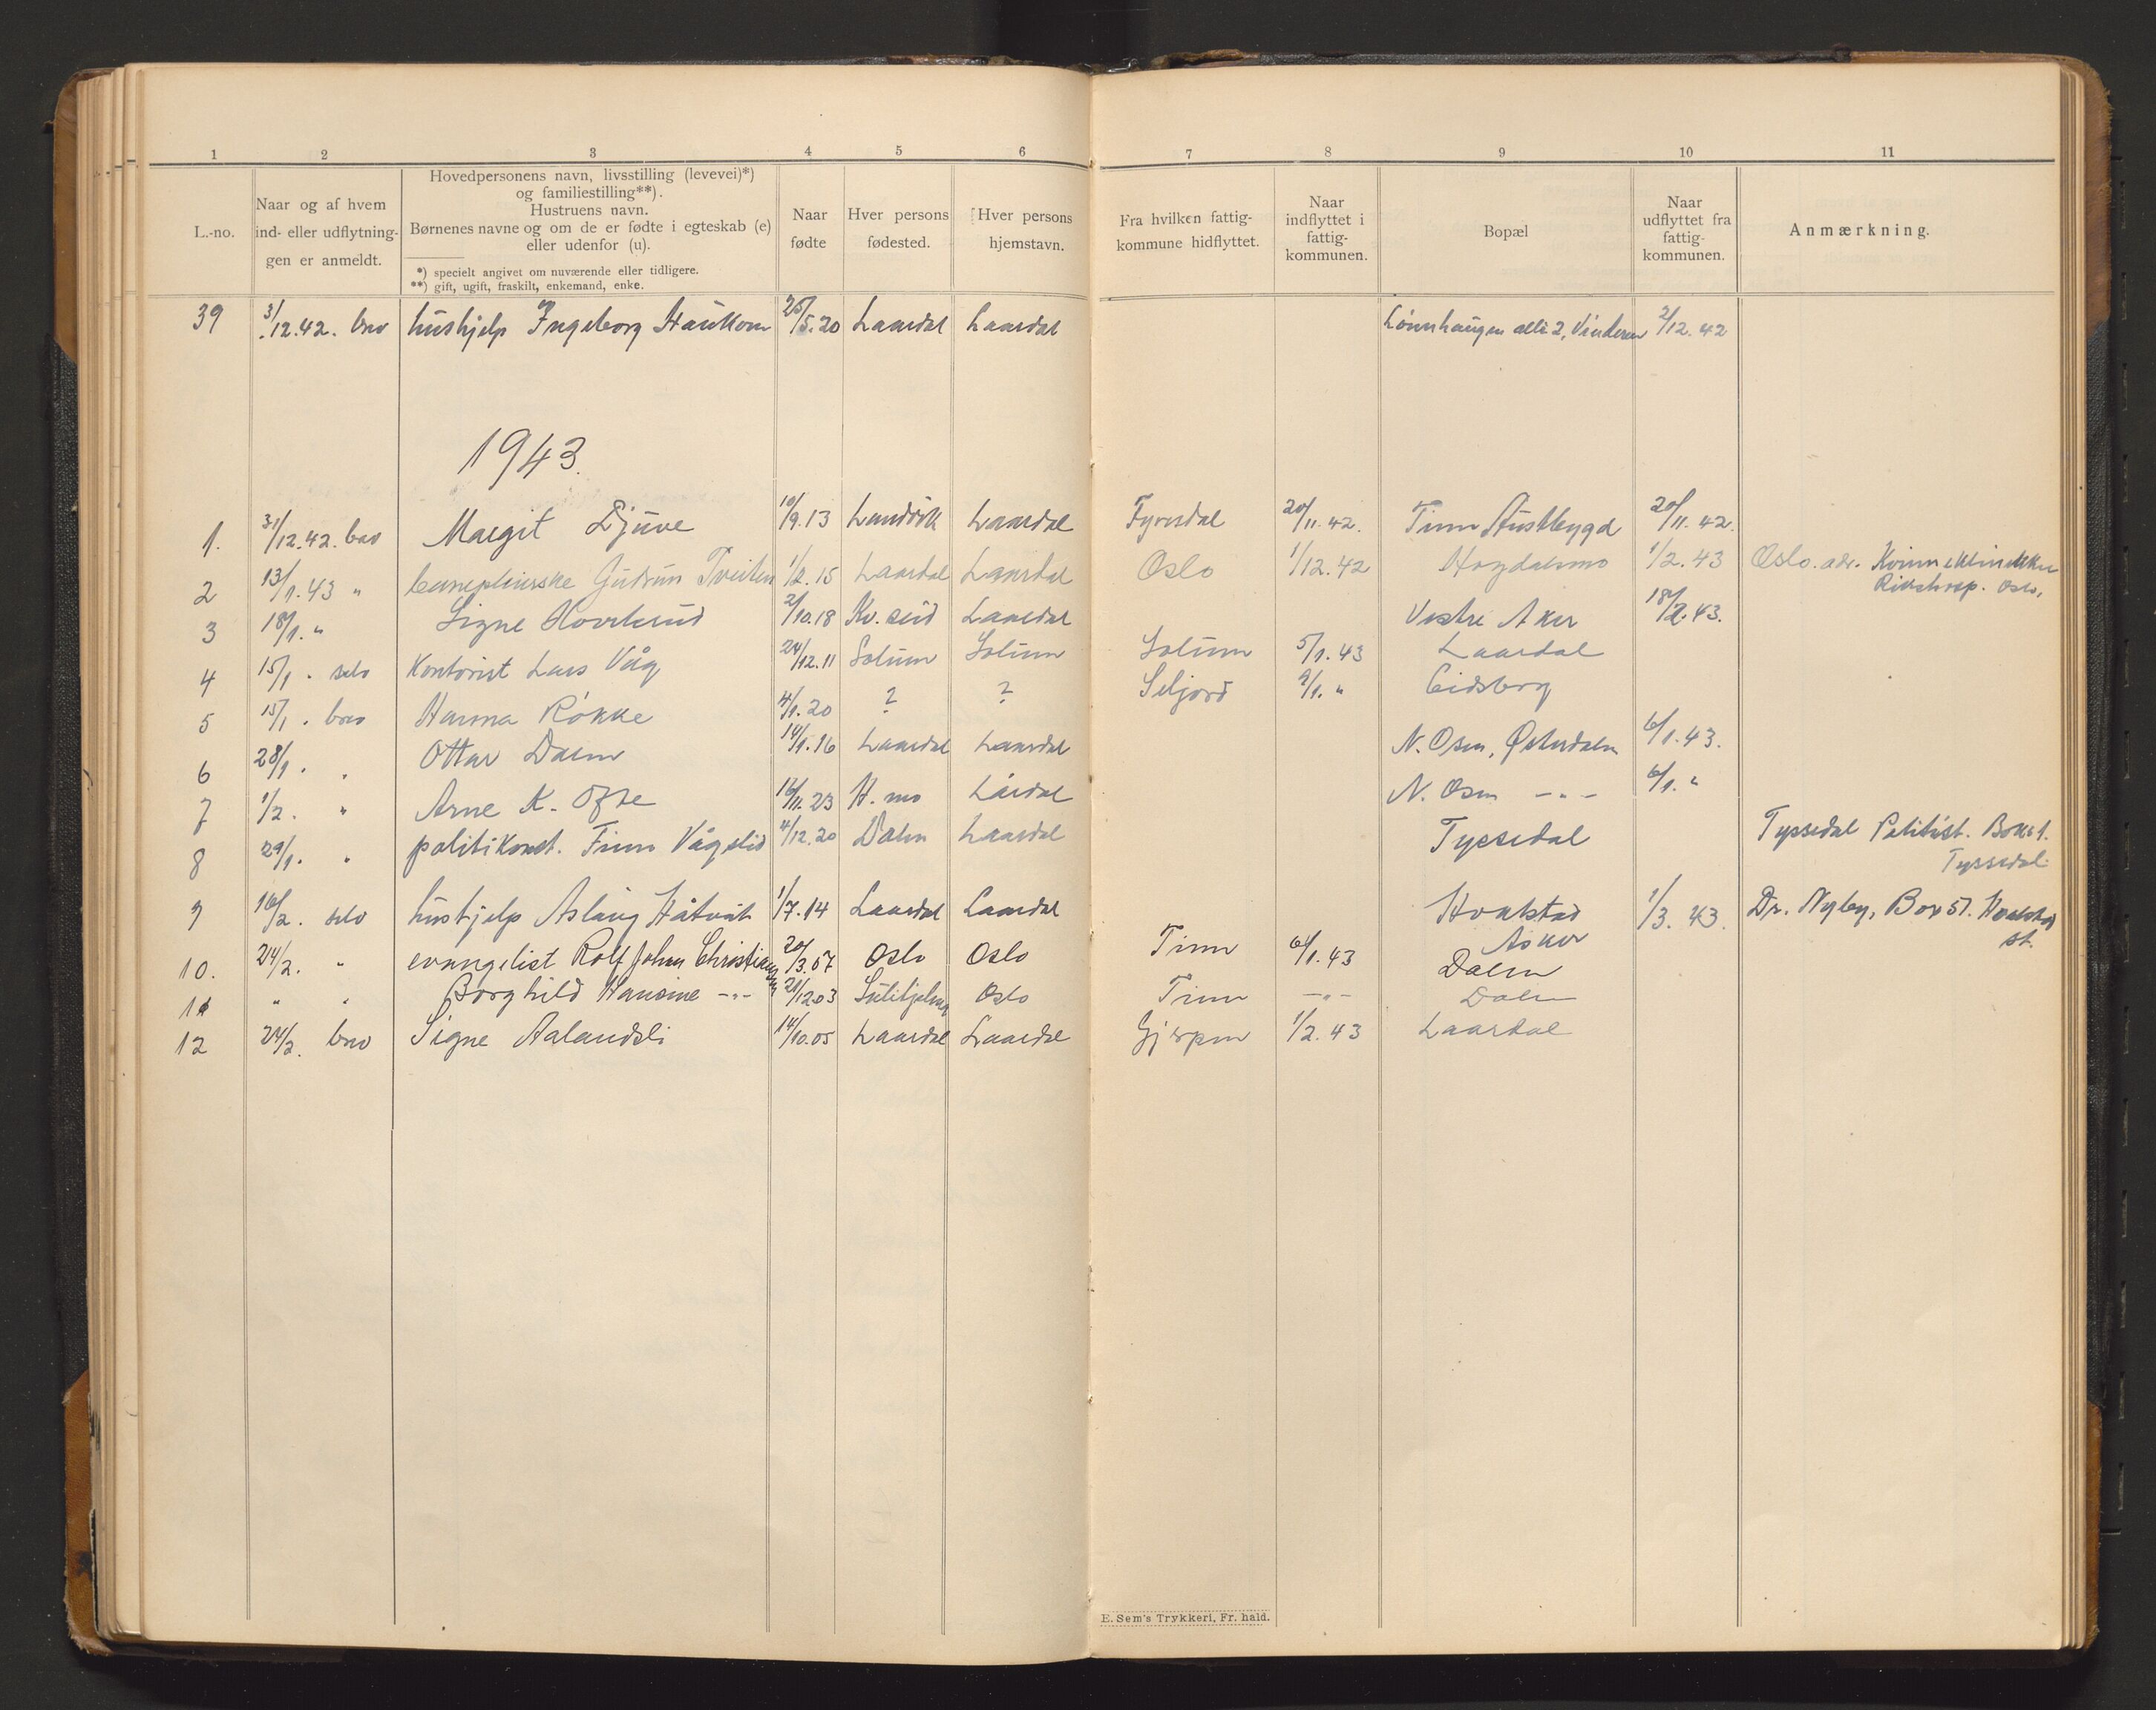 1 2 3 4 5 6 7 8 9 10 11
L.-no.
Naar og af hvem
ind- eller udflytnin-
gen er anmeldt.
Hovedpersonens navn, livsstilling (levevei)*)
og familiestilling**).
Hustruens navn.
Børnenes navne og om de er fødte i egteskab (e)
eller udenfor (u).
*) specielt angivet om nuværende eller tidligere.
**) gift, ugift, fraskilt, enkemand, enke.
Naar
fødte
Hver persons
fødested.
Hver persons
hjemstavn.
Fra hvilken fattig-
kommune hidflyttet.
Naar
indflyttet i
fattig-
kommunen.
Bopæl
Naar
udflyttet fra
fattig-
kommunen.
Anmærkning.
39 3/12.42. brev hushjelp Ingeborg Haukom 25/5.20 Laardal Laardal Lønnhaugen allé 2, Vinderen 2/12.42
1943.
1. 31/12.42. brev Margit Djuve 10/9.13 Landvik Laardal Fyresdal 20/11.42. Tinn Austbygd 20/11.42.
2 13/1.43 " Gudrun Tveiten 1/2.15 Laardal Laardal Oslo 1/12.42 Høydalsmo 1/2.43 Oslo. adr. Kvinneklinikken
Rikshosp. Oslo,
3 18/1. " Signe Hovrud 2/10.18 Kv.seid Laardal Vestre Aker 18/2.43.
4 15/1 . selv Kontorist Lars Våg 24/12.11 Solum Solum Solum 5/1.43 Laardal
5 15/1 . brev Hanna Røkke 4/1.20 ? ? Seljord 9/1. " Eidsborg
6 28/1 . " Ottar Dalen 14/1.16 Laardal Laardal N. Osen, Østerdalen 6/1.43.
7 1/2. " Arne K. Ofte 12/11.23 H.mo Lårdal N. Osen -"- 6/1. "
8 29/1. " politikonst. Finn Vågslid 4/12.20 Dalen Laardal Tyssedal Tyssedal Politist. Boks 1.
Tyssedal
9 16/2. selv hushjelp Aslaug Håtveit 1/7.14 Laardal Laardal Hvalstad 1/3.43. Dr. Nyby, Box 57. Hvalstad
Asker st.
10. 24/2. " evangelist Rolf Johan Christiansen 20/3.07 Oslo Oslo Tinn 6/1.43 Dalen
11 " " Borghild Hansine -"- 21/12.03 Sulitjelma Oslo Tinn -"- Dalen
12 24/2. brev Signe Aalandsli 14/10.05 Laardal Laardal Gjerpen 1/2.43 Laardal
E. Sem's Trykkeri, Fr. hald.